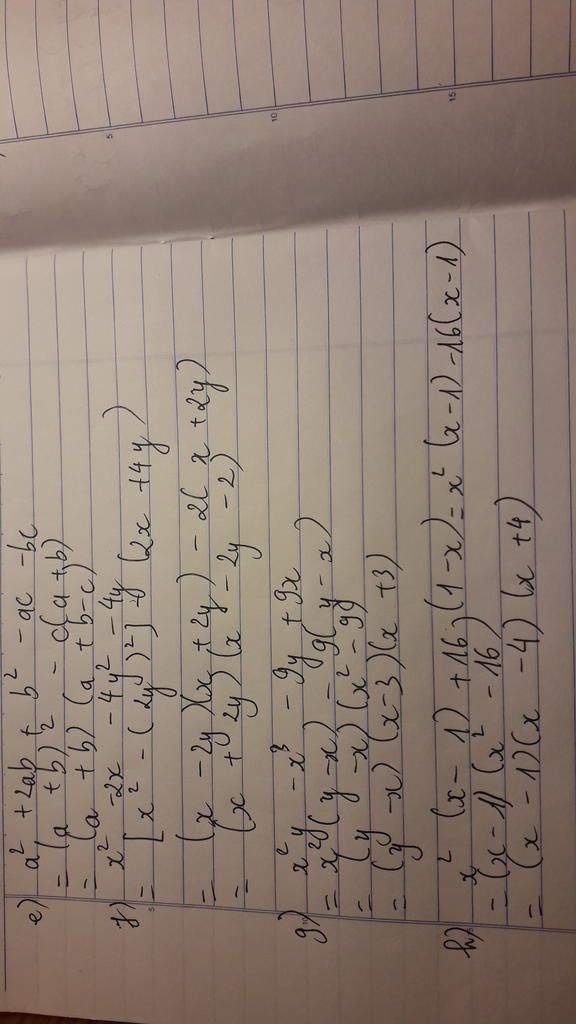 e) a² + 2ab + b² - ac - bc
= (a + b)² - c(a + b)
= (a + b) (a + b - c)
f) x² - 2x - 4y² - 4y
= [x² - (2y)²] - (2x + 4y)
= (x - 2y)(x + 2y) - 2(x + 2y)
= (x + 2y)(x - 2y - 2)
g) x²y - x³ - 9y + 9x
= x²(y - x) - 9(y - x)
= (y - x)(x² - 9)
= (y - x)(x - 3)(x + 3)
h) x² (x - 1) + 16 (1 - x) = x² (x - 1) - 16(x - 1)
= (x - 1)(x² - 16)
= (x - 1)(x - 4)(x + 4)
5
5
10
15